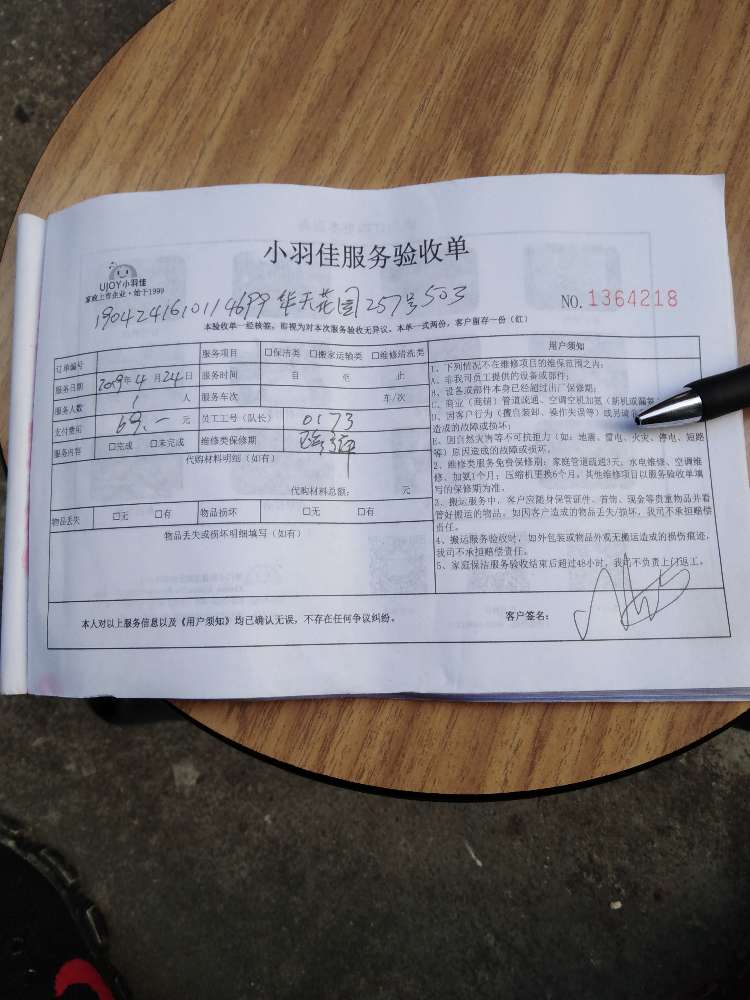 小羽佳服务验收单
UJOY小羽佳
家政上市企业·始于1999
1904241610114699 华天花园257号503
NO.1364218
本验收单一经核签,即视为对本次服务验收无异议。本单一式两份,客户留存一份(红)
订单编号 服务项目 □保洁类 □搬家运输类 □维修清洗类
服务日期 2019年4月24日 服务时间 自 至 止
服务人数 1 人 服务车次 车/次
支付费用 69.一 元 员工工号(队长) 0173
服务内容 □完成 □未完成 维修类保修期
代购材料明细(如有)
代购材料总额: 元
物品丢失 □无 □有 物品损坏 □无 □有
物品丢失或损坏明细填写(如有)
用户须知
1、下列情况不在维修项目的维保范围之内:
A、非我司员工提供的设备或部件;
B、设备或部件本身已经超过出厂保修期;
C、商业(商铺)管道疏通、空调空机加氨(新机或漏氨
D、因客户行为(擅自装卸、操作失误等)或另请
造成的故障或损坏;
E、因自然灾害等不可抗力(如:地震、雷电、火灾、停电、短路
等)原因造成的故障或损坏。
2、维修类服务免费保修期:家庭管道疏通3天,水电维修、空调维
修、加氨1个月;压缩机更换6个月。其他维修项目以服务验收单填
写的保修期为准。
3、搬运服务中,客户应随身保管证件、首饰、现金等贵重物品并看
管好搬运的物品。如因客户造成的物品丢失/损坏,我司不承担赔偿
责任。
4、搬运服务验收时,如外包装或物品外观无搬运造成的损伤痕迹,
我司不承担赔偿责任。
5、家庭保洁服务验收结束后超过48小时,我司不负责上门返工。
本人对以上服务信息以及《用户须知》均已确认无误,不存在任何争议纠纷。 客户签名: